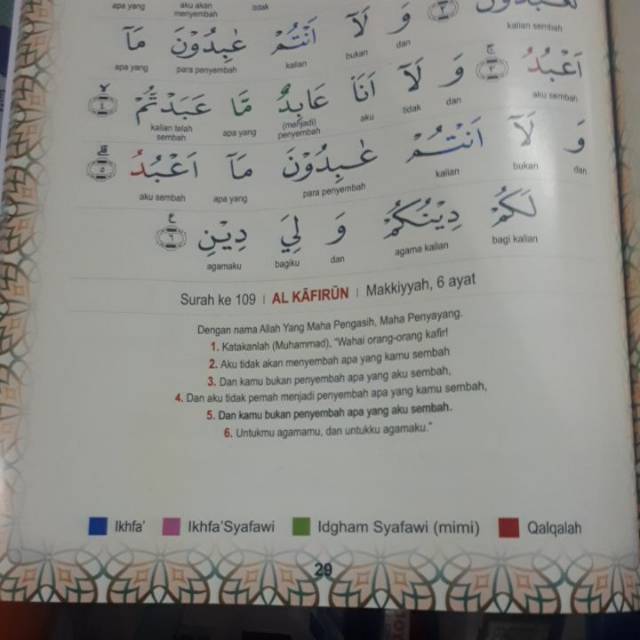 apa yang aku akan menyembah tidak
وَ لَآ اَنْتُمْ عٰبِدُوْنَ مَآ
kalian sembah
dan bukan kalian para penyembah apa yang
اَعْبُدُ ۚ ﴿٣﴾ وَ لَآ اَنَا۠ عَابِدٌ مَّا عَبَدْتُّمْ ۙ ﴿٤﴾
aku sembah dan tidak aku (menjadi) penyembah apa yang kalian telah sembah
وَ لَآ اَنْتُمْ عٰبِدُوْنَ مَآ اَعْبُدُ ۗ ﴿٥﴾
dan bukan kalian para penyembah apa yang aku sembah
لَكُمْ دِيْنُكُمْ وَ لِيَ دِيْنِ ࣖ ﴿٦﴾
bagi kalian agama kalian dan bagiku agamaku
Surah ke 109 | AL KĀFIRŪN | Makkiyyah, 6 ayat
Dengan nama Allah Yang Maha Pengasih, Maha Penyayang.
1. Katakanlah (Muhammad), "Wahai orang-orang kafir!
2. Aku tidak akan menyembah apa yang kamu sembah
3. Dan kamu bukan penyembah apa yang aku sembah,
4. Dan aku tidak pernah menjadi penyembah apa yang kamu sembah,
5. Dan kamu bukan penyembah apa yang aku sembah.
6. Untukmu agamamu, dan untukku agamaku."
Ikhfa' Ikhfa'Syafawi Idgham Syafawi (mimi) Qalqalah
29